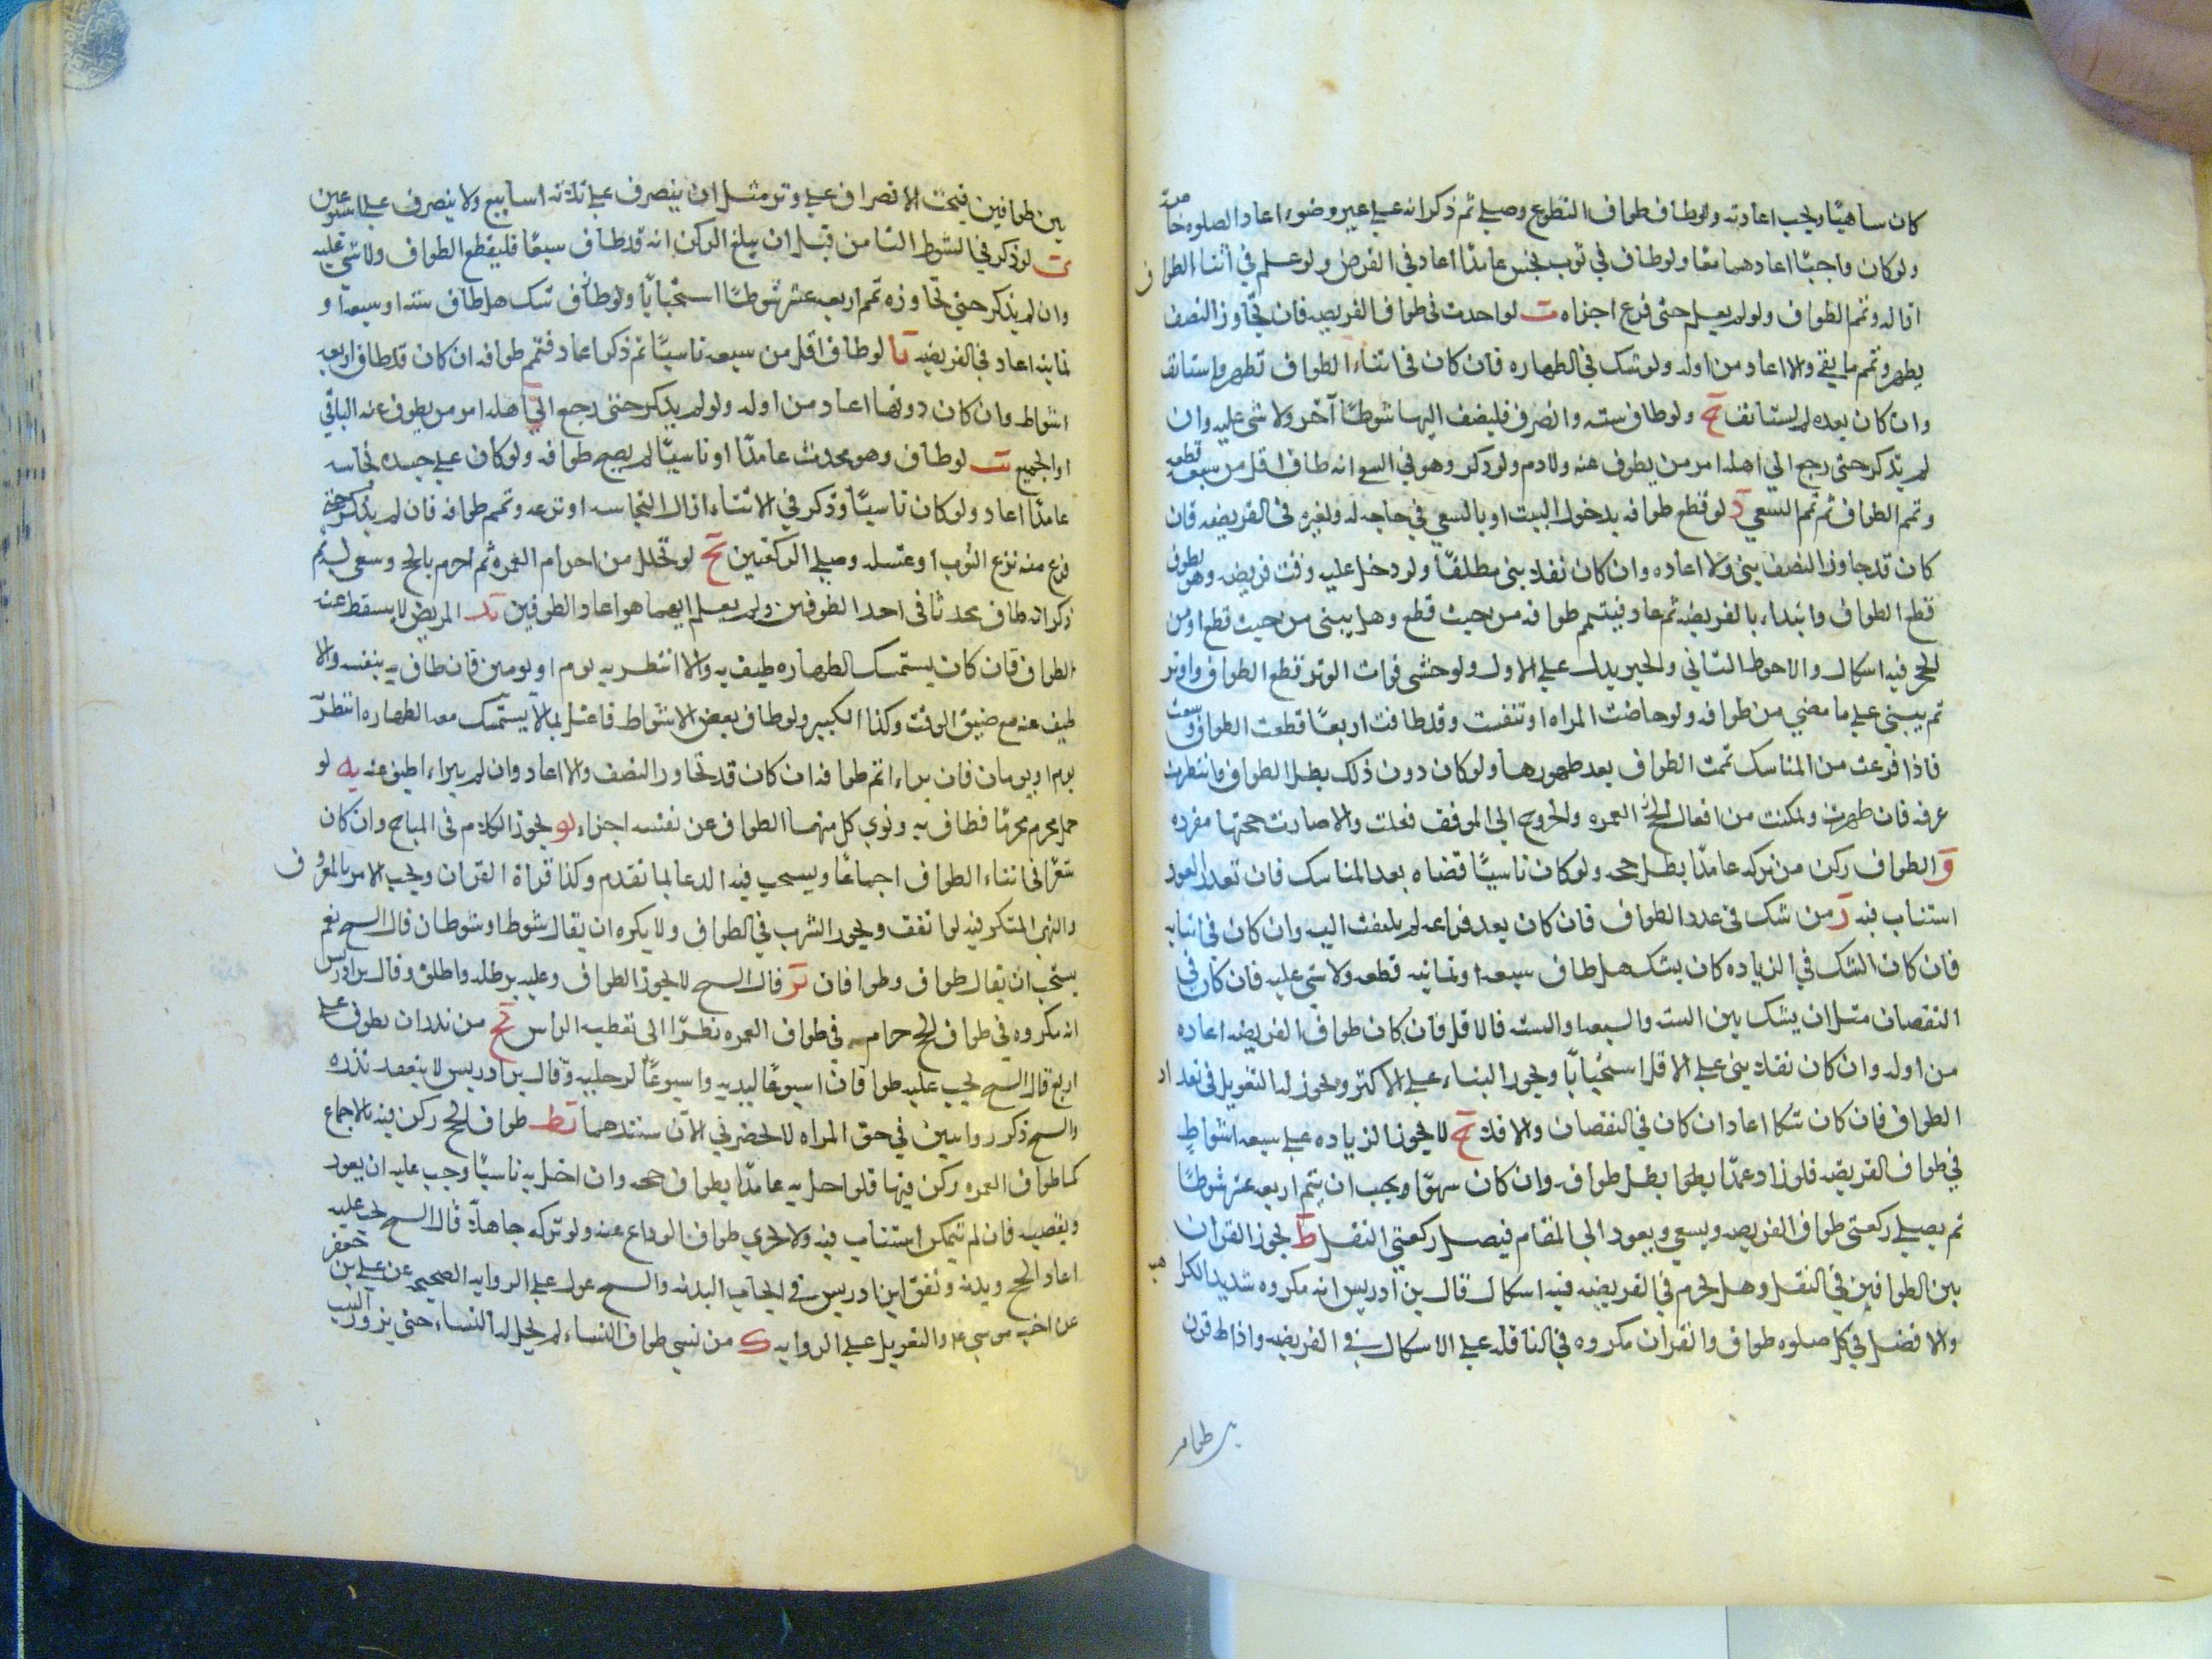 كان ساهيًا ويجب اعادته ولوطاف طواف التطوع وصلي ثم ذكر انه علي غير وضوء اعاد الصلوه خاصة
ولوكان واجبًا اعادهما معًا ولوطاف في ثوب نجس عامدًا اعاد في الفرض ولو علم في اثناء الطواف
ازاله وتمم الطواف ولو لم يعلم حتى فرغ اجزاه لو احدث في طواف الفريضه فان تجاوز النصف
يطهر وتمم ما بقي والا اعاد من اوله ولو شك في الطهاره فان كان في اثناء الطواف تطهر واستانف
وان كان بعده لم يستانف ج ولوطاف سته وانصرف فليضف اليها شوطًا آخر ولا شى عليه وان
لم يذكر حتى رجع الي اهله امر من يطوف عنه ولادم ولو ذكر وهو في السعي انه طاف اقل من سبعه قطعه
وتمم الطواف ثم تمم السعي د لو قطع طوافه بدخول البيت او بالسعي في حاجه له او لغيره في الفريضه فان
كان قد جاوز النصف بنى ولا اعاده وان كان نفلا بنى مطلقًا ولو دخل عليه وقت فريضه وهو يطوف
قطع الطواف وابتداء بالفريضه ثم عاد فيتمم طوافه من حيث قطع وهل يبنى من حيث قطع او من
الحجر فيه اشكال والاحوط الثاني والخبر يدل علي الاول ولو خشى فوات الوتر قطع الطواف واوتر
ثم يبنى علي ما مضي من طوافه ولو حاضت المراه او تنفست وقد طافت اربعًا قطعت الطواف وسعت
فاذا فرغت من المناسك تممت الطواف بعد طهورها ولو كان دون ذلك بطل الطواف وانتظرت
عرفه فان طهرت وتمكنت من افعال العمره والخروج الى الموقف فعلت والا صارت حجتها مفرده
و الطواف ركن من تركه عامدًا بطل حجه ولو كان ناسيًا قضاه بعد المناسك فان تعذر العود
استناب فيه ز من شك في عدد الطواف فان كان بعد فراغه لم يلتفت اليه وان كان في اثنايه
فان كان الشك في الزياده كان يشك هل طاف سبعه او ثمانيه قطعه ولا شى عليه فان كان في
النقصان مثل ان يشك بين السته والسبعه او السته فالاقل فان كان طواف الفريضه اعاده
من اوله وان كان نفلا بنى علي الاقل استحبابًا ويجوز البناء علي الاكثر ويجوز له التعويل في تعداد
الطواف فان كان شكا اعاد ان كان في النقصان والا فلا ح لا يجوز الزياده علي سبعه اشواط
في طواف الفريضه فلو زاد عمدًا بطل طوافه وان كان سهوًا ويجب ان يتم اربعه عشر شوطًا
ثم يصلي ركعتي طواف الفريضه ويسعي ويعود الى المقام فيصلي ركعتي النفل ط يجوز القران
بين الطوافين في النفل وهل يحرم في الفريضه فيه اشكال قال بن ادريس انه مكروه شديد الكراهيه
والافضل في كل صلوه طواف والقران مكروه في النافله علي الاشكال في الفريضه واذا قرن
بين طوافين
بين طوافين فيحث الانصراف علي وتر مثل ان ينصرف علي ثلاثه اسابيع ولا ينصرف علي اسبوعين
ى لو ذكر في الشوط الثامن قبل ان يبلغ الركن انه قد طاف سبعًا فليقطع الطواف ولا شي عليه
وان لم يذكر حتى تجاوزه تمم اربعه عشر شوطًا استحبابًا ولو طاف شك هل طاف سته او سبعه او
ثمانيه اعاد في الفريضه يا لو طاف اقل من سبعه ناسيًا ثم ذكر اعاد فتمم طوافه ان كان قد طاف اربعه
اشواط وان كان دونها اعاد من اوله ولو لم يذكر حتى رجع الي اهله امر من يطوف عنه الباقي
او الجميع يب لو طاف وهو محدث عامدًا او ناسيًا لم يصح طوافه ولو كان علي جسده نجاسه
عامدًا اعاد ولو كان ناسيًا وذكر في الاثناء ازال النجاسه او نزعه وتمم طوافه فان لم يذكر حتى
فرغ منه نزع الثوب او غسله وصلي الركعتين يج لو تحلل من احرام العمره ثم احرم بالحج وسعى ثم
ذكر انه طاف محدثا في احد الطوفين ولم يعلم ايهما هو اعاد الطوفين يد المريض لا يسقط عنه
الطواف فان كان يستمسك الطهاره طيف به والا انتظر به يوم او يومين فان طاف به بنفسه والا
طيف عنه مع ضيق الوقت وكذا الكبير ولو طاف بعض الاشواط فاعتل بما لا يستمسك معه الطهاره انتظر
يوم او يومان فان براء اتم طوافه ان كان قد تجاوز النصف والا اعاد وان لم يبراء اطيف عنه يه لو
حمل محرم محرمًا فطاف به ونوي كل منهما الطواف عن نفسه اجزاء يو يجوز الكلام في المباح وان كان
شعرًا في اثناء الطواف اجماعًا ويستحب فيه الدعا بما تقدم وكذا قراة القران ويجب الامر بالمعروف
والنهي المنكر فيه لو اتفق ويجوز الشرب في الطواف ولا يكره ان يقال شوط او شوطان قال الشيخ نعم
يستحب ان يقال طواف وطوافان يز قال الشيخ لا يجوز الطواف وعليه برطله واطلق وقال بن ادريس
انه مكروه في طواف الحج حرام في طواف العمره نظرًا الى تغطيه الراس يح من نذر ان يطوف علي
اربع قال الشيخ يجب عليه طوافان اسبوعًا ليديه واسبوعًا لرجليه وقال بن ادريس لا ينعقد نذره
والشيخ ذكر روايتين في حق المراه لا يحضرني الآن سندهما يط طواف الحج ركن فيه بالاجماع
كما طواف العمره ركن فيها فلو اخل به عامدًا بطل حجه وان اخل به ناسيًا وجب عليه ان يعود
ويقضيه فان لم يتمكن استناب فيه ولا يجزي طواف الوداع عنه ولو تركه جاهلًا قال الشيخ يجب عليه
اعاد الحج وبدنه ونفى ابن ادريس في ايجاب البدنه والشيخ عول علي الروايه الصحيحه عن علي بن جعفر
عن اخيه موسي والتعويل علي الروايه ك من نسي طواف النساء لم يحل له النساء حتى يزور البيت